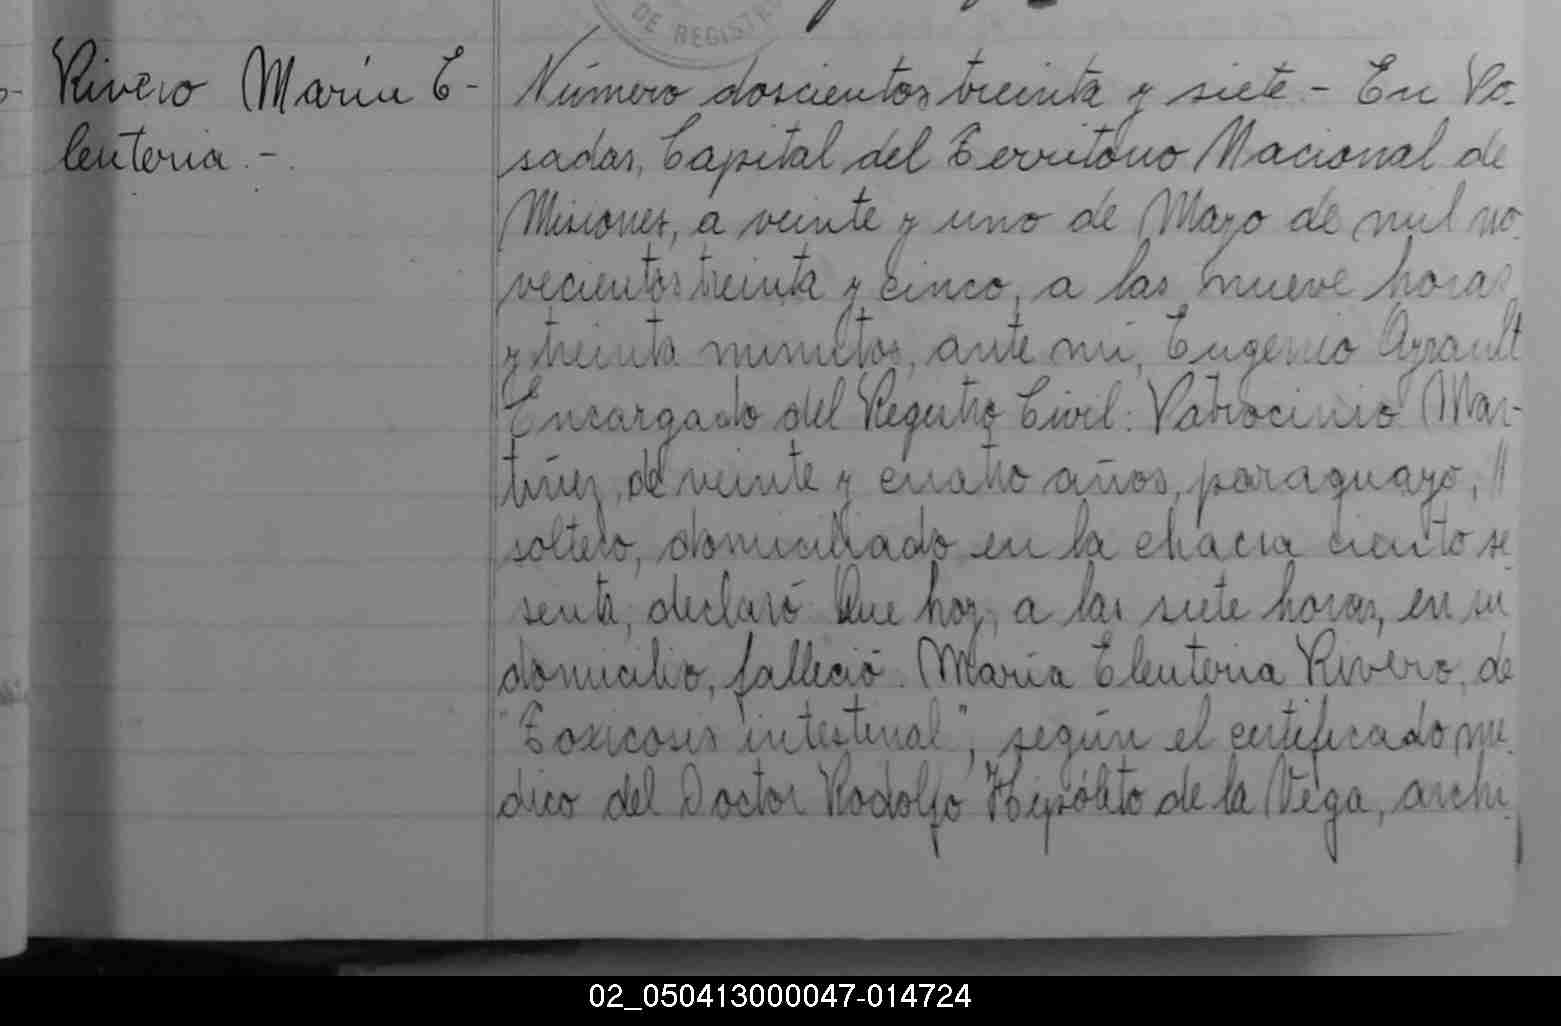 DE REGISTR
Rivero María E-
leuteria.-
Número doscientos treinta y siete.- En Po-
sadas, Capital del Territorio Nacional de
Misiones, a veinte y uno de Mayo de mil no-
vecientos treinta y cinco, a las nueve horas
y treinta minutos, ante mí, Eugenio Ayrault
Encargado del Registro Civil: Patrocinio Mar-
tínez, de veinte y cuatro años, paraguayo, //
soltero, domiciliado en la chacra ciento se-
senta, declaró: Que hoy, a las siete horas, en su
domicilio, falleció María Eleuteria Rivero, de
"Toxicosis intestinal", según el certificado mé-
dico del Doctor Rodolfo Hipólito de la Vega, archi-
02_050413000047-014724